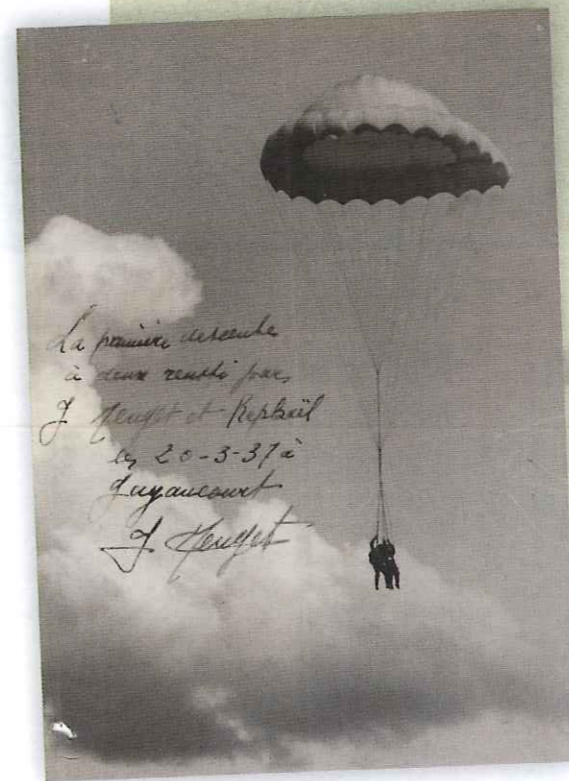 La première descente
à deux réussi par
J et Raphaël
le 20-3-37 à
Guyancourt
J